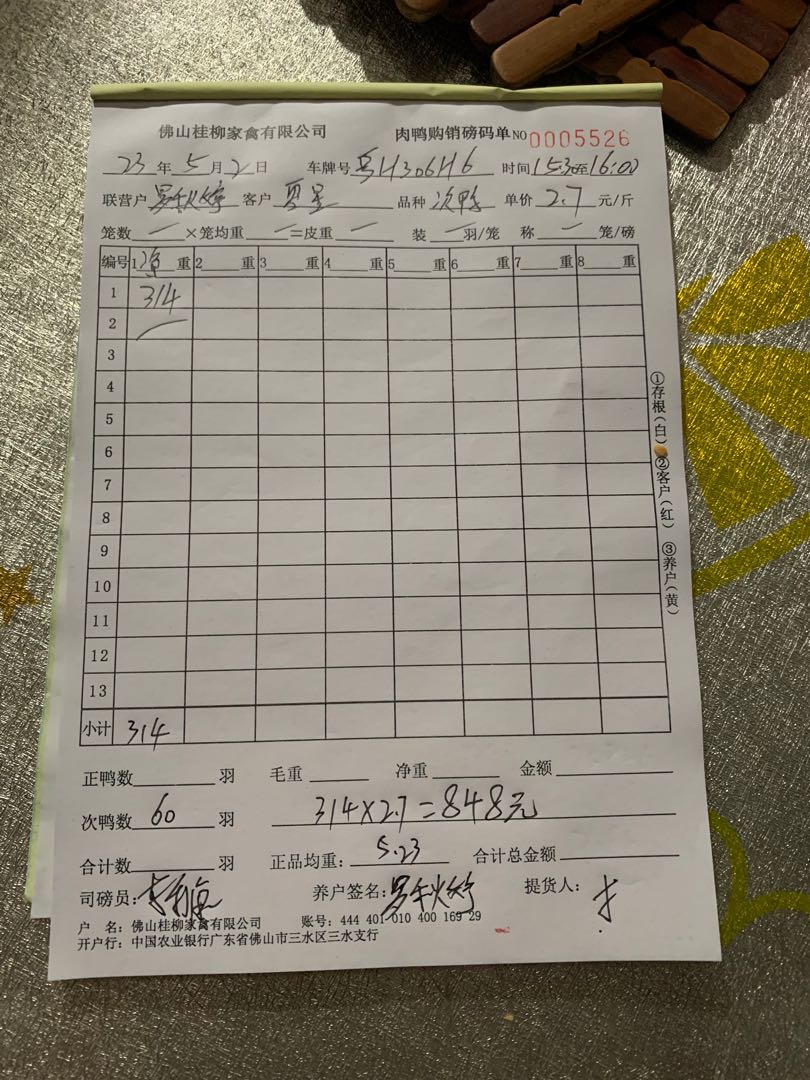 佛山桂柳家禽有限公司 肉鸭购销磅码单 NO 0005526
23 年 5 月 2 日 车牌号 粤H306H6 时间 15:30至16:00
联营户 客户 品种 次鸭 单价 2.7 元/斤
笼数 — ×笼均重 — =皮重 — 装 — 羽/笼 称 — 笼/磅
编号 1 净 重 2 重 3 重 4 重 5 重 6 重 7 重 8 重
1 314
2
3
4
5
6
7
8
9
10
11
12
13
小计 314
①存根(白) ②客户(红) ③养户(黄)
正鸭数 羽 毛重 净重 金额
次鸭数 60 羽 314×2.7=848元
合计数 羽 正品均重: 5.23 合计总金额
司磅员: 养户签名: 提货人:
户 名: 佛山桂柳家禽有限公司 账号: 444 401 010 400 169 29
开户行: 中国农业银行广东省佛山市三水区三水支行